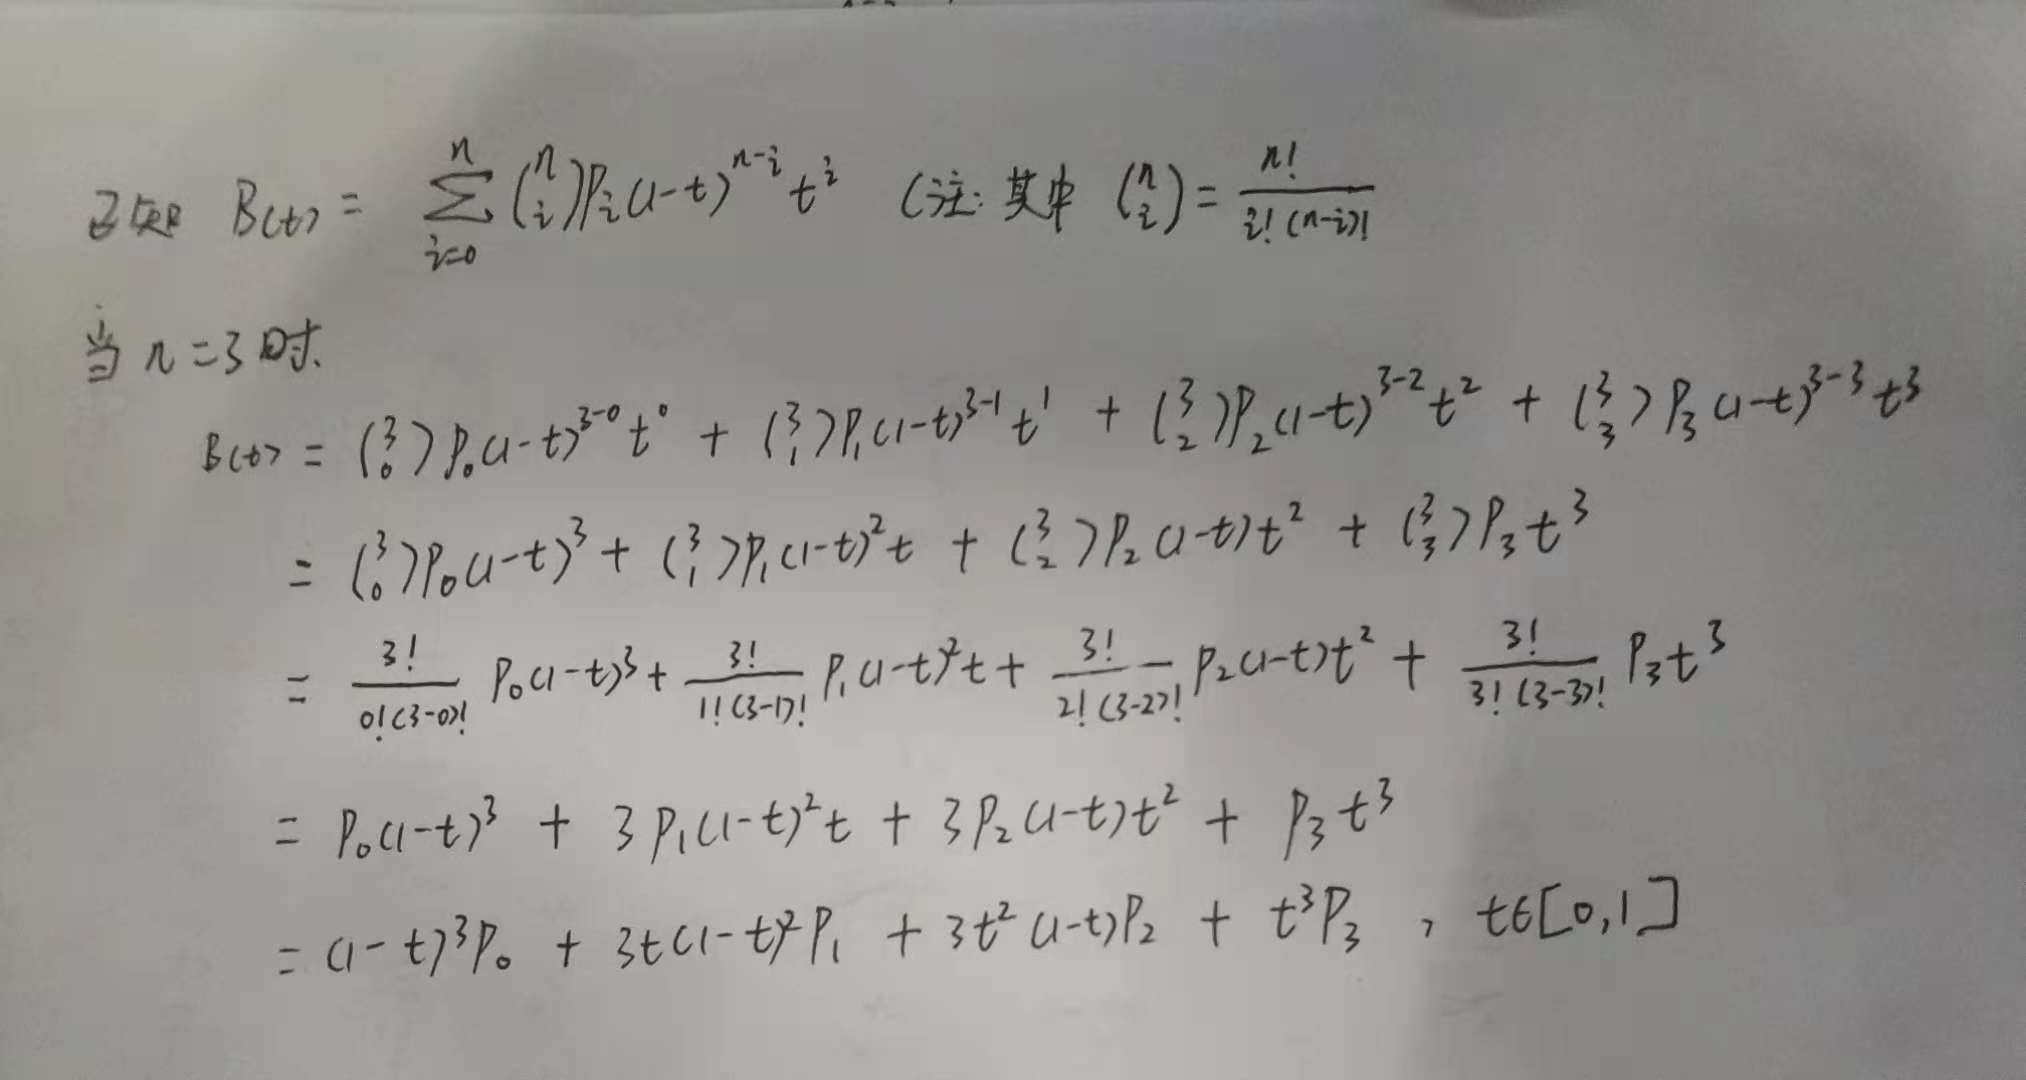 已知 B(t) = \sum_{i=0}^{n} \binom{n}{i} P_i (1-t)^{n-i} t^i (注: 其中 \binom{n}{i} = \frac{n!}{i!(n-i)!}
当 n=3时.
B(t) = \binom{3}{0} P_0 (1-t)^{3-0} t^0 + \binom{3}{1} P_1 (1-t)^{3-1} t^1 + \binom{3}{2} P_2 (1-t)^{3-2} t^2 + \binom{3}{3} P_3 (1-t)^{3-3} t^3
= \binom{3}{0} P_0 (1-t)^3 + \binom{3}{1} P_1 (1-t)^2 t + \binom{3}{2} P_2 (1-t) t^2 + \binom{3}{3} P_3 t^3
= \frac{3!}{0!(3-0)!} P_0 (1-t)^3 + \frac{3!}{1!(3-1)!} P_1 (1-t)^2 t + \frac{3!}{2!(3-2)!} P_2 (1-t) t^2 + \frac{3!}{3!(3-3)!} P_3 t^3
= P_0 (1-t)^3 + 3 P_1 (1-t)^2 t + 3 P_2 (1-t) t^2 + P_3 t^3
= (1-t)^3 P_0 + 3t (1-t)^2 P_1 + 3t^2 (1-t) P_2 + t^3 P_3 , t∈[0,1]